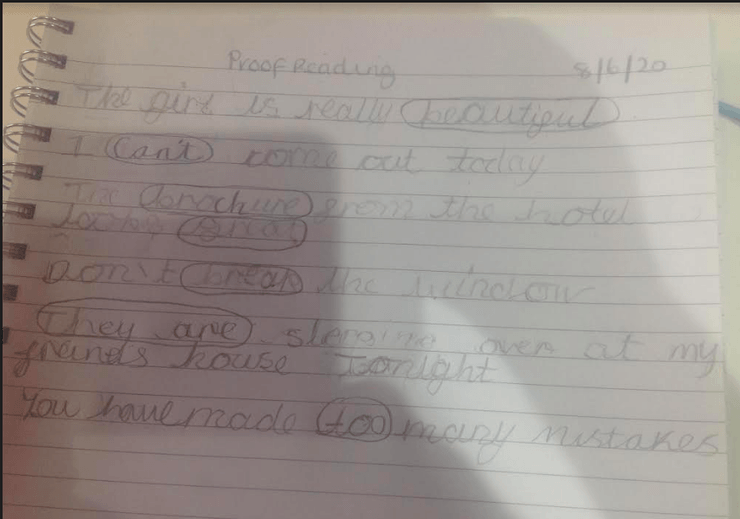 Proof Reading 8/6/20
The girl is really beautiful
I Can't come out today
The from the hotel
looks great
Don't break the window
They are over at my
house tonight
You have made too many mistakes